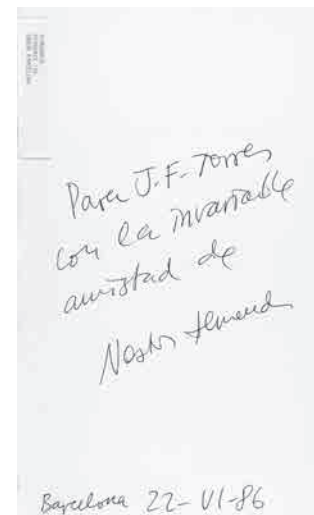 Para J.F. Torres
con la invariable
amistad de
Nestor
Barcelona 22-VI-86